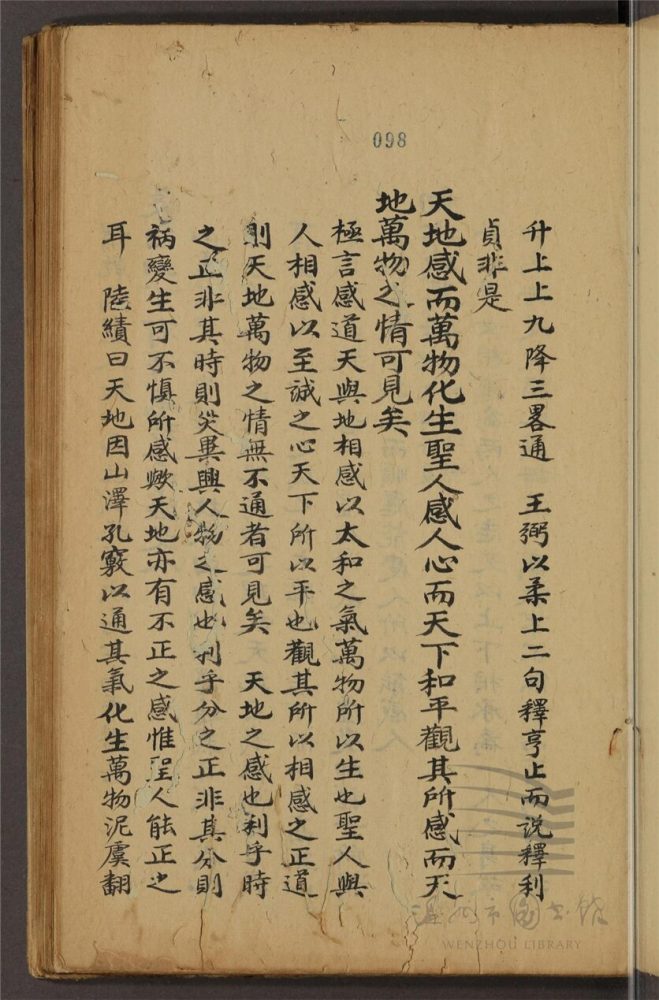 098
升上上九降三畧通　王弼以柔上二句釋亨止而說釋利
貞非是
天地感而萬物化生聖人感人心而天下和平觀其所感而天
地萬物之情可見矣
極言感道天與地相感以太和之氣萬物所以生也聖人與
人相感以至誠之心天下所以平也觀其所以相感之正道
則天地萬物之情無不通者可見矣　天地之感也利乎時
之正非其時則災異興人物之感也利乎分之正非其分則
禍變生可不慎所感歟天地亦有不正之感惟聖人能正之
耳　陸績曰天地因山澤孔竅以通其氣化生萬物泥虞翻
溫州市圖書館
WENZHOU LIBRARY